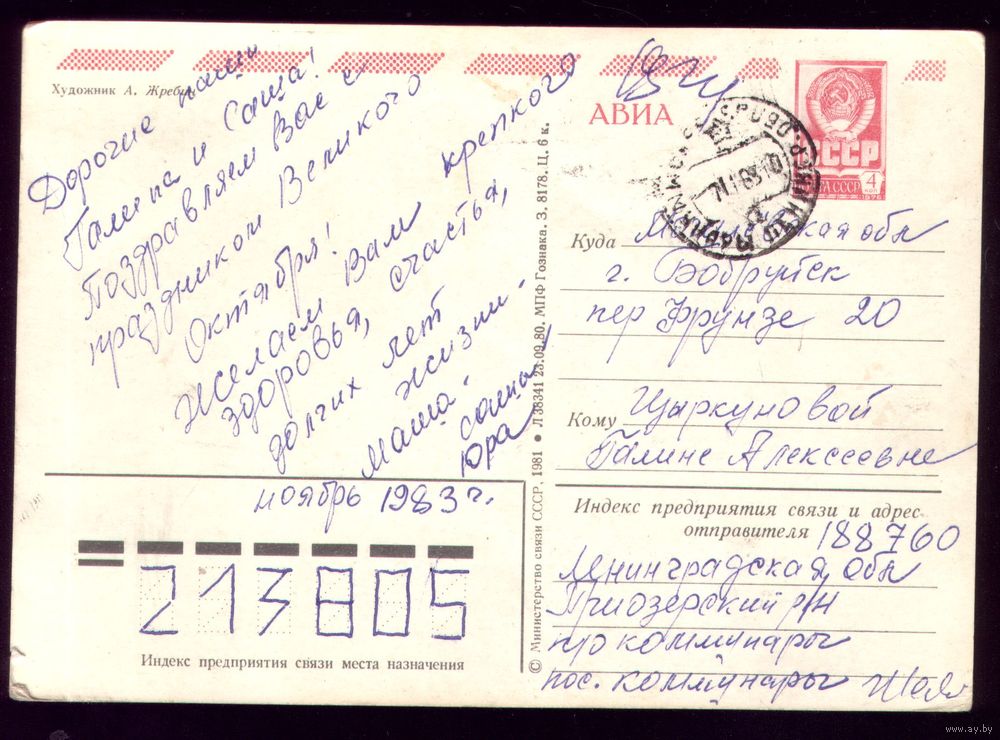 Художник А. Жребин
Дорогие наши
Галина и Саша!
Поздравляем Вас с
праздником Великого
Октября!
Желаем Вам крепкого
здоровья, счастья,
долгих лет жизни.
Маша Саша
Юра
ноябрь 1983 г.
213805
Индекс предприятия связи места назначения
© Министерство связи СССР, 1981 • Л 38341 23.09.80. МПФ Гознака. З. 8178. Ц. 6 к.
АВИА
СССР
ПОЧТА СССР
4
КОП
Куда Могилевская обл
г. Бобруйск
пер Фрунзе 20
Кому Цыркуновой
Галине Алексеевне
Индекс предприятия связи и адрес
отправителя 188760
Ленинградская обл
Приозерский р/н
п/о коммунары
пос. коммунары
www.ay.by